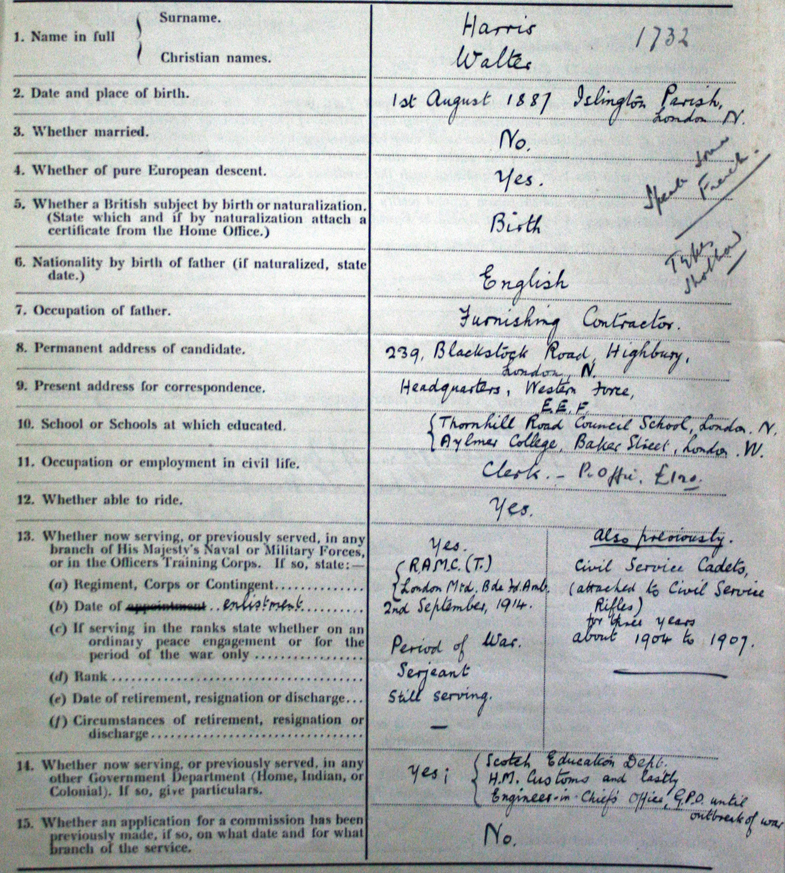 1. Name in full
Surname.
Harris
1732
Christian names.
Walter
2. Date and place of birth.
1st August 1887 Islington Parish,
London N.
3. Whether married.
No.
4. Whether of pure European descent.
Yes.
Speaks some
French.
5. Whether a British subject by birth or naturalization.
(State which and if by naturalization attach a
certificate from the Home Office.)
Birth
6. Nationality by birth of father (if naturalized, state
date.)
English
Types
Shorthand
7. Occupation of father.
Furnishing Contractor.
8. Permanent address of candidate.
239, Blackstock Road, Highbury,
London, N.
9. Present address for correspondence.
Headquarters, Western Force,
E.E.F.
10. School or Schools at which educated.
Thornhill Road Council School, London. N.
Aylmer College, Baker Street, London. W.
11. Occupation or employment in civil life.
Clerk. - P. Offic. £120
12. Whether able to ride.
Yes.
13. Whether now serving, or previously served, in any
branch of His Majesty's Naval or Military Forces,
or in the Officers Training Corps. If so, state:—
Yes.
Also previously.
(a) Regiment, Corps or Contingent
R.A.M.C. (T.)
London Mtd. Bde Fd. Amb.
Civil Service Cadets,
(attached to Civil Service
Rifles)
for three years
about 1904 to 1907.
(b) Date of appointment enlistment
2nd September, 1914.
(c) If serving in the ranks state whether on an
ordinary peace engagement or for the
period of the war only
Period of War.
(d) Rank
Serjeant
(e) Date of retirement, resignation or discharge
Still serving.
(f) Circumstances of retirement, resignation or
discharge
—
14. Whether now serving, or previously served, in any
other Government Department (Home, Indian, or
Colonial). If so, give particulars.
Yes;
Scotch Education Dept.
H.M. Customs and lastly
Engineer-in-Chief's Office, G.P.O. until
outbreak of war
15. Whether an application for a commission has been
previously made, if so, on what date and for what
branch of the service.
No.